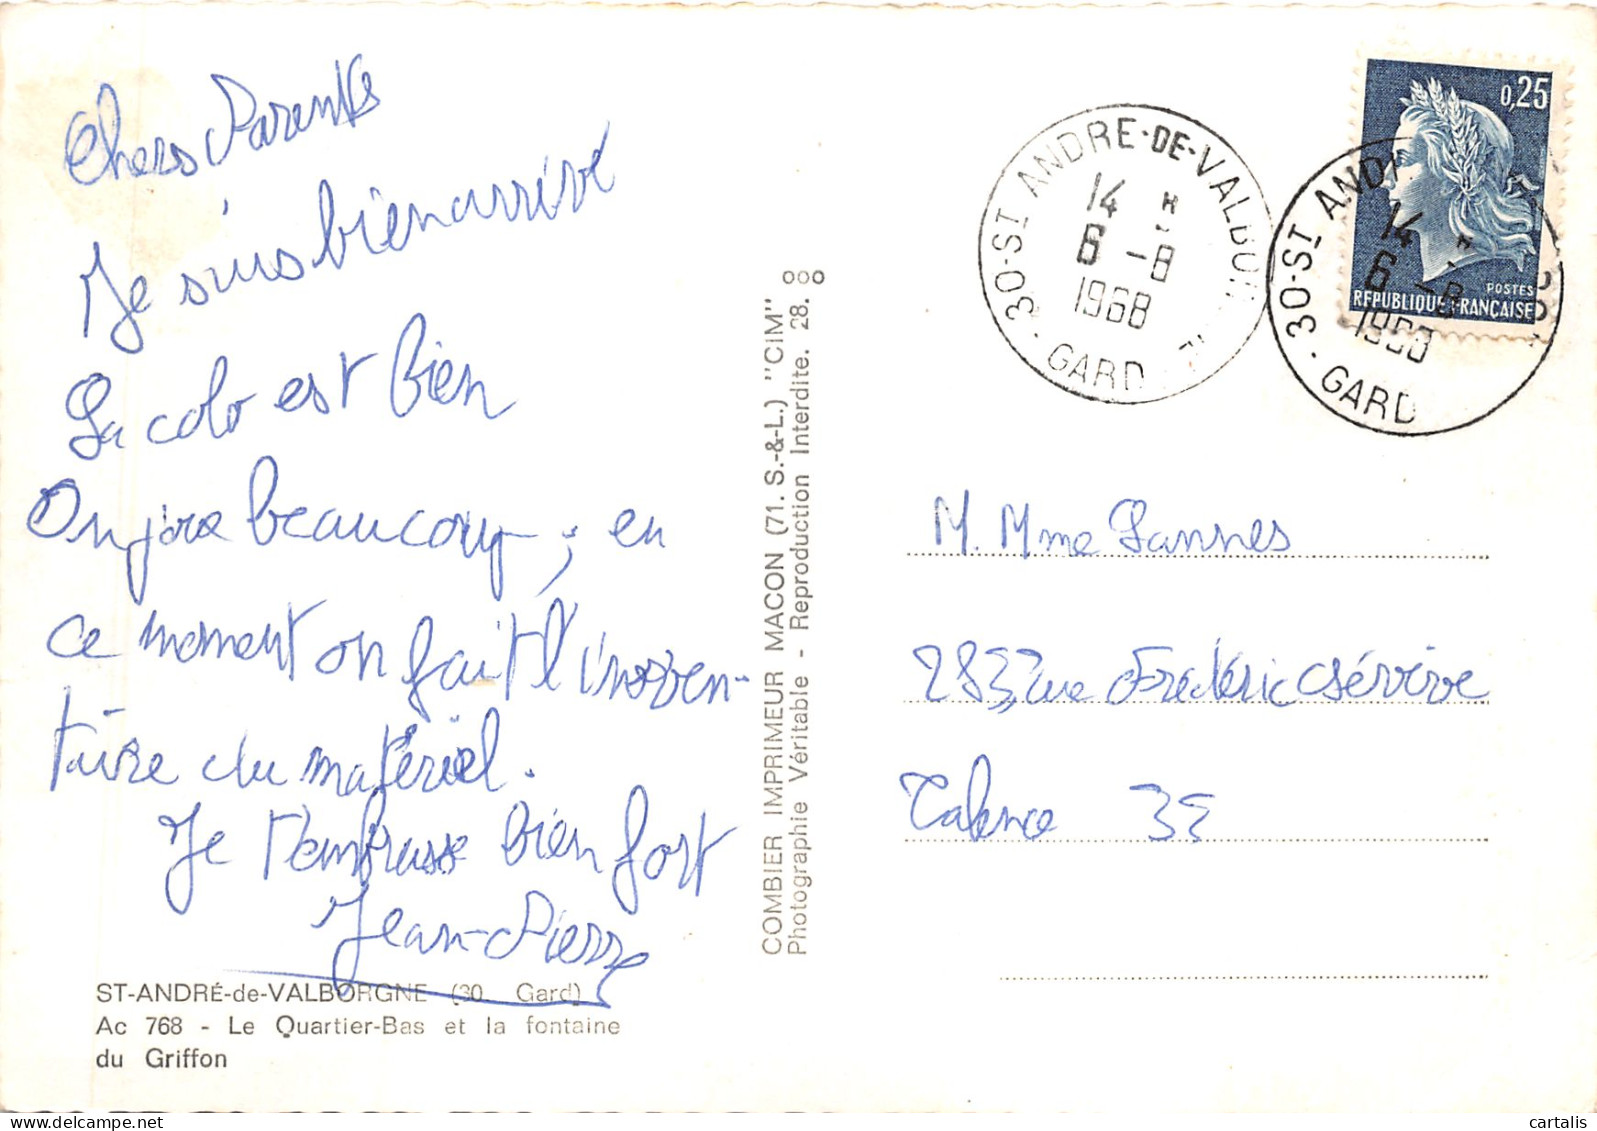 Chers Parents
Je suis bien arrivé
La colo est bien
On joue beaucoup ; en
ce moment on fait l'inven-
taire du matériel.
Je t'embrasse bien fort
Jean-Pierre
ST-ANDRÉ-de-VALBORGNE (30 Gard)
Ac 768 - Le Quartier-Bas et la fontaine
du Griffon
COMBIER IMPRIMEUR MACON (71. S.-&-L.) "CIM"
Photographie Véritable - Reproduction Interdite. 28.
30-ST ANDRE-DE-VALBORGNE
14 H
6 -8
1968
GARD
30-ST AND
14 H
6 -8
1968
GARD
0,25
POSTES
REPUBLIQUE FRANÇAISE
M. Mme Lannes
rue Frédéric Sévène
Talence 33
cartalis